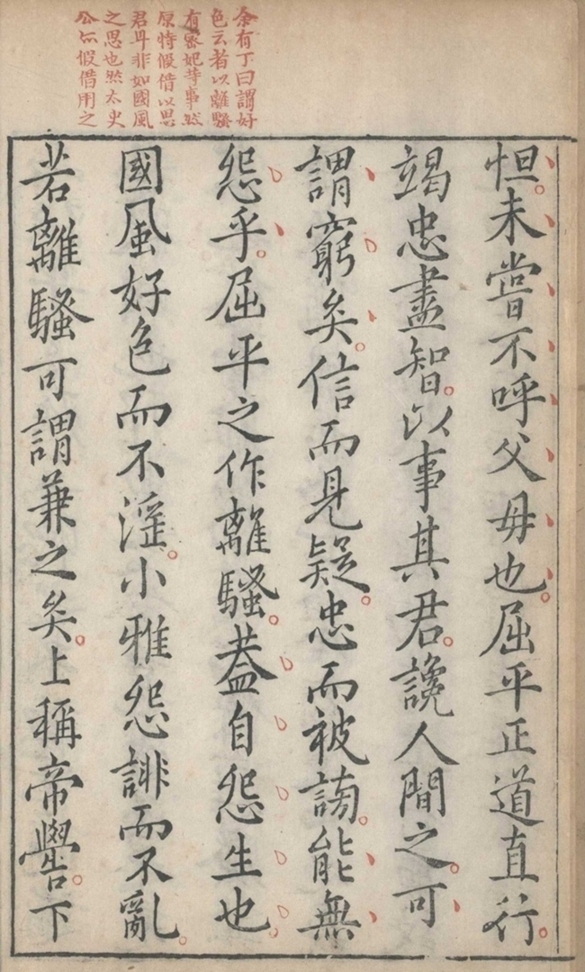 余有丁曰謂好
色云者以離騷
有宓妃等事然
原特假借以思
君耳非如國風
之思也然太史
公亦假借用之
怛未嘗不呼父母也屈平正道直行
竭忠盡智以事其君讒人間之可
謂窮矣信而見疑忠而被謗能無
怨乎屈平之作離騷葢自怨生也
國風好色而不淫小雅怨誹而不亂
若離騷可謂兼之矣上稱帝嚳下